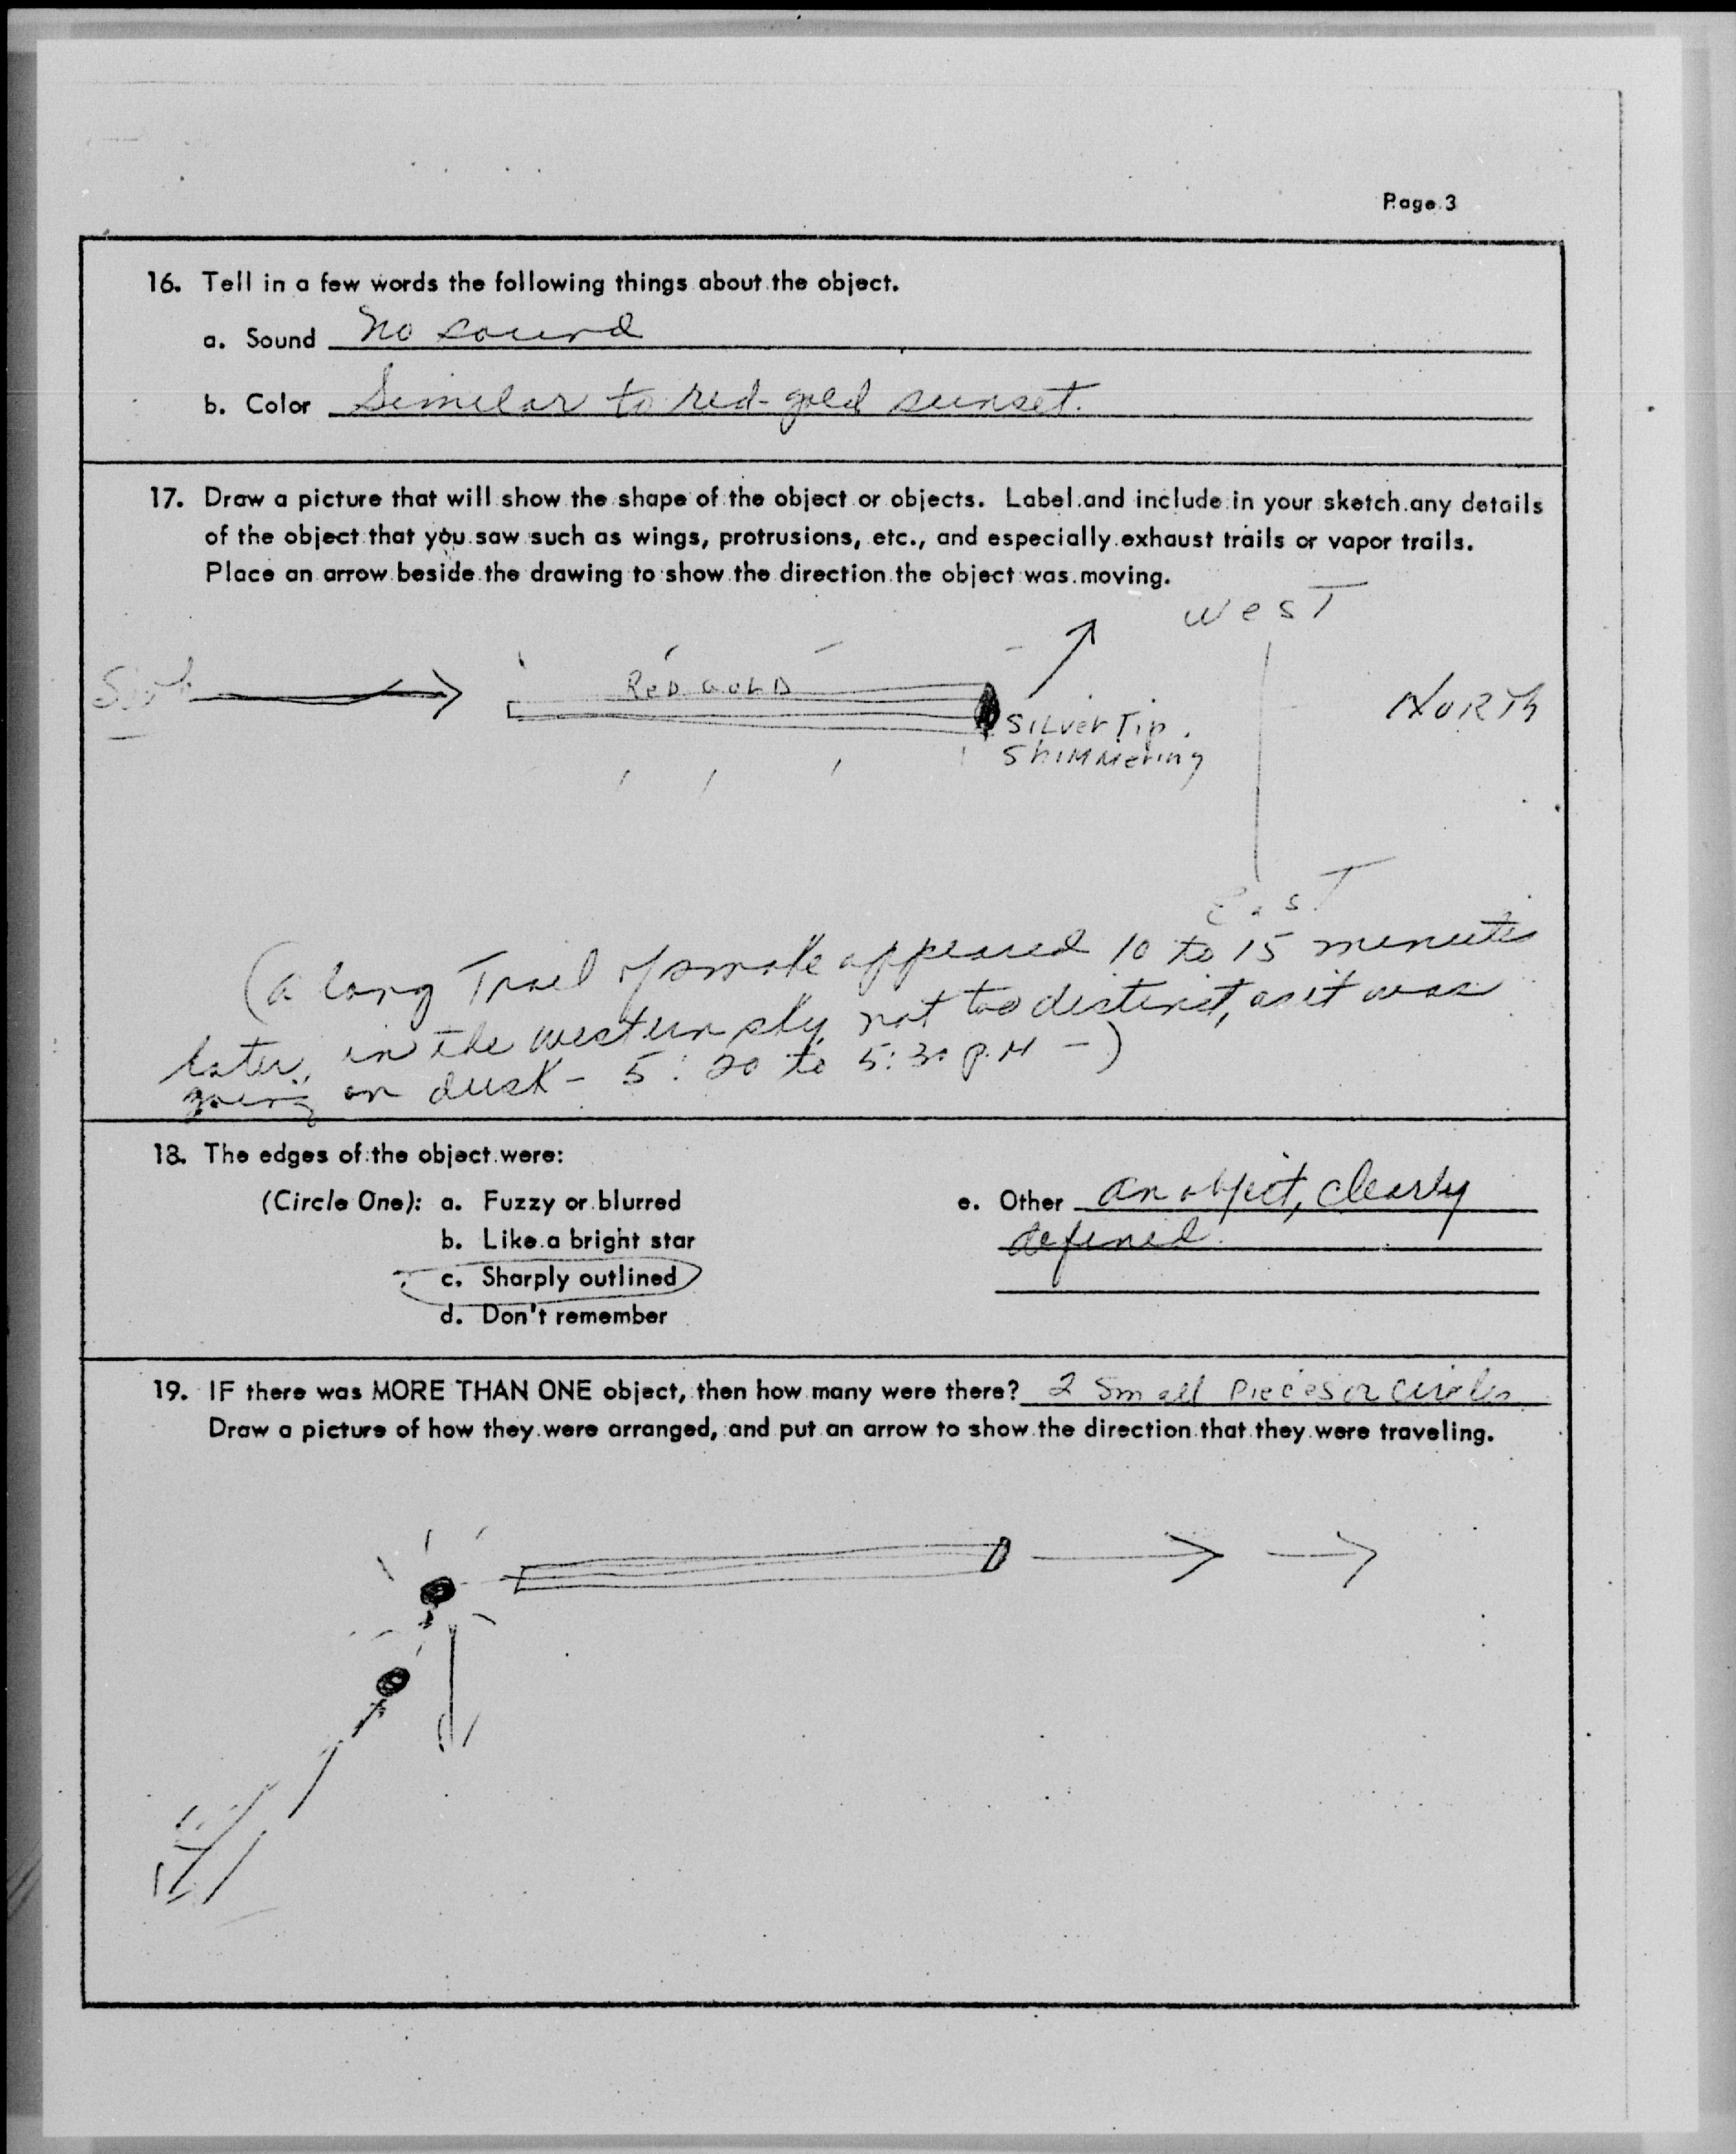 Page 3
16. Tell in a few words the following things about the object.
a. Sound No sound
b. Color Similar to red-gold sunset.
17. Draw a picture that will show the shape of the object or objects. Label and include in your sketch any details
of the object that you saw such as wings, protrusions, etc., and especially exhaust trails or vapor trails.
Place an arrow beside the drawing to show the direction the object was moving.
WesT
RED GOLD
NORTh
SILver Tip.
ShiMMering
EasT
(a long Trail of smoke appeared 10 to 15 minutes
later, in the western sky, not too distinct, as it was
going on dusk - 5:20 to 5:30 P.M -)
18. The edges of the object were:
(Circle One): a. Fuzzy or blurred
b. Like a bright star
c. Sharply outlined
d. Don't remember
e. Other an object, clearly
defined.
19. IF there was MORE THAN ONE object, then how many were there? 2 Small Pieces or circles
Draw a picture of how they were arranged, and put an arrow to show the direction that they were traveling.